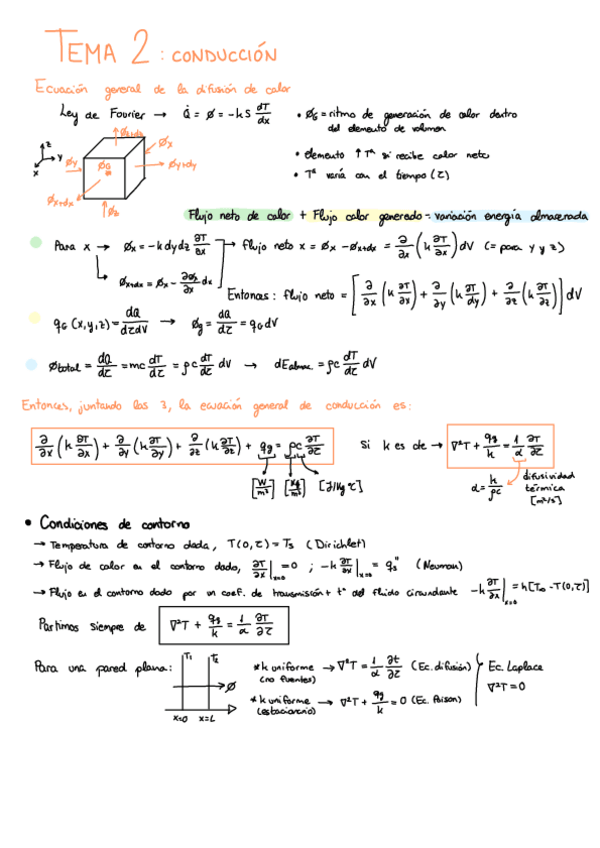 TEMA 2 : CONDUCCIÓN
Ecuación general de la difusión de calor
Ley de Fourier → Q̇ = ø = -kS dT/dx
• øG = ritmo de generación de calor dentro
del elemento de volumen
• elemento ↑Tª si recibe calor neto
• Tª varía con el tiempo (τ)
z y x
øz+dz øx øy øG øy+dy øx+dx øz
Flujo neto de calor + Flujo calor generado = variación energía almacenada
Para x → øx = -k dy dz ∂T/∂x → flujo neto x = øx - øx+dx = ∂/∂x (k ∂T/∂x) dV (= para y y z)
↳ øx+dx = øx - ∂øx/∂x dx
Entonces: flujo neto = [∂/∂x (k ∂T/∂x) + ∂/∂y (k ∂T/∂y) + ∂/∂z (k ∂T/∂z)] dV
qG (x,y,z) = dQ/dτdV → øg = dQ/dτ = qG dV
øtotal = dQ/dτ = mc dT/dτ = ρc dT/dτ dV → dEalmac. = ρc dT/dτ dV
Entonces, juntando las 3, la ecuación general de conducción es:
∂/∂x (k ∂T/∂x) + ∂/∂y (k ∂T/∂y) + ∂/∂z (k ∂T/∂z) + qg = ρc ∂T/∂τ Si k es cte → ∇²T + qg/k = 1/α ∂T/∂τ
[W/m³] [kg/m³] [J/kg τ]
α = k/ρc difusividad
térmica
[m²/s]
• Condiciones de contorno
→ Temperatura de contorno dada, T(0,τ) = Ts (Dirichlet)
→ Flujo de calor en el contorno dado, ∂T/∂x |x=0 = 0 ; -k ∂T/∂x |x=0 = qs" (Neuman)
→ Flujo en el contorno dado por un coef. de transmisión + tª del fluido circundante -k ∂T/∂x |x=0 = h[T∞ - T(0,τ)]
Partimos siempre de ∇²T + qg/k = 1/α ∂T/∂τ
Para una pared plana: T1 T2 ø x=0 x=L
*k uniforme → ∇²T = 1/α ∂t/∂τ (Ec. difusión)
(no fuentes)
*k uniforme → ∇²T + qg/k = 0 (Ec. Poison)
(estacionario)
Ec. Laplace
∇²T = 0